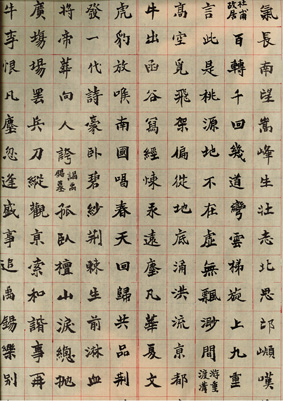 氣長南望嵩峰生壯志北思邙嶺嘆
杜甫故居百轉千回幾道彎雲梯旋上九重
言此是桃源地不在虛無飄渺間游重渡溝
高空覓飛架偏從地底涌洪流京都
牛出函谷爲經煉汞遠塵凡華夏文
虎豹放喉南國唱春天回歸共品荆
發一代詩豪卧碧紗荆棘生前淋血
將帝葬向人誇孤臥檀山淚總拋
廣場罷兵刀縱觀京索和諧事再
牛事恨凡塵忽逢盛事追禹錫樂別